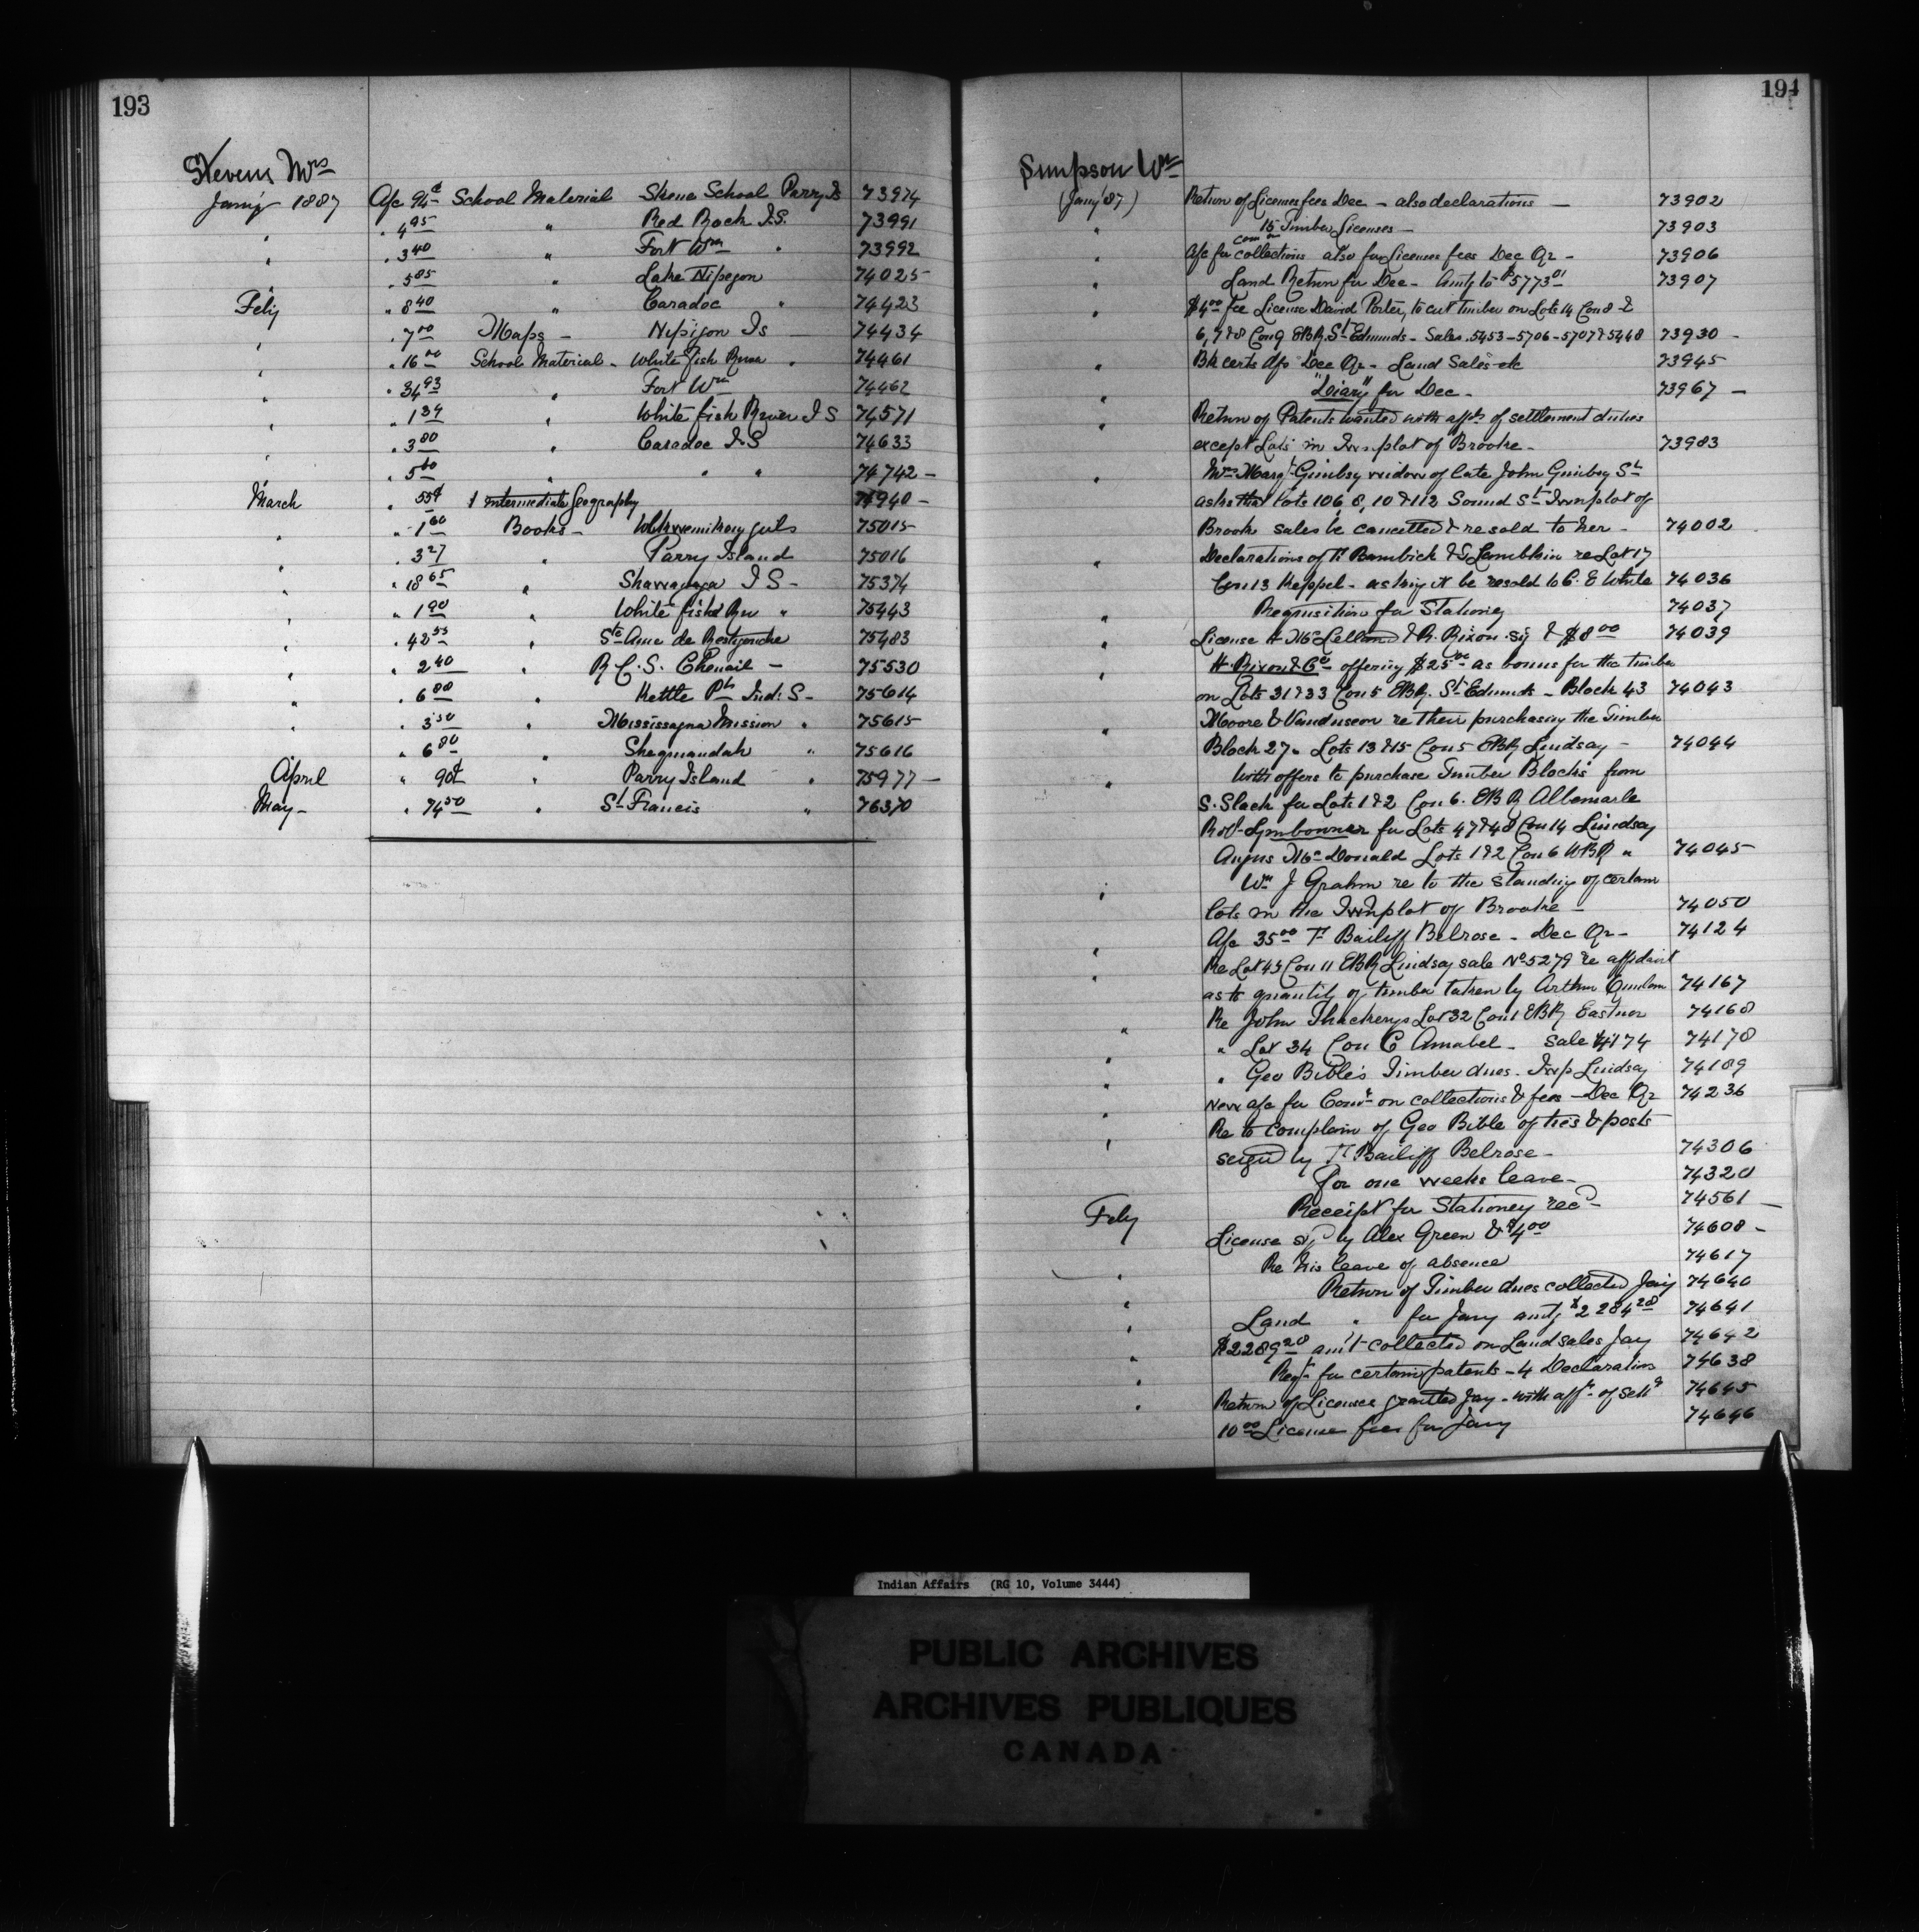 193
Stevens Mrs
Jany 1887 A/c 94c School Material Skene School Parry Is 73974
" " 4.95 " Red Rock I.S. 73991
" " 3.40 " Fort Wm " 73992
" " 5.85 " Lake Nipegon 74025
Feby " 8.40 " Caradoc " 74423
" " 7.00 Maps - Nipigon Is 74434
" " 16.00 School Material - White fish River " 74461
" " 34.93 " Fort Wm 74462
" " 1.34 " White fish River I S 74571
" " 3.80 " Caradoc I S 74633
" " 5.60 " " " 74742 -
March " 55¢ 1 Intermediate Geography 74940 -
" " 1.60 Books - girls 75015
" " 3.27 " Parry Island 75016
" " 18.65 " Shawanaga I S - 75374
" " 1.90 " White fish Riv " 75443
" " 42.55 " Ste Anne de Restigouche 75483
" " 2.40 R.C.S. Chenail - 75530
" " 6.88 " Kettle Pt Ind: S - 75614
" " 3.50 " Mississagua Mission " 75615
" " 6.80 " Sheguiandah " 75616
April " 90¢ " Parry Island " 75977 -
May - " 74.50 " St Francis " 76370
194
Simpson Wm
(Jany '87) Return of License fees Dec - also declarations - 73902
" 15 Timber Licenses - 73903
com on
" A/c for collections also for License fees Dec Qr - 73906
" Land Return for Dec - Amtg to $5773.01 73907
" $4.00 fee License David Porter, to cut timber on Lots 14 Con 8 &
6, 7 & 8 Con 9 EBR. St Edmunds - Sales 5453 - 5706 - 5707 & 5448 73930 -
" Bk certs A/c Dec Qr - Land Sales etc 73945
" "Diary" for Dec - 73967 -
" Return of Patents wanted with affts of settlement duties
except Lots in Twnplot of Brooke - 73983
" Mrs Margt widow of late John St
asks that Lots 106, 8, 10 & 112 Sound St Twnplot of
Brooke sales be cancelled & resold to her - 74002
" Declarations of & Lamblain re Lot 17
Con 13 Keppel - asking it be resold to C. E White 74036
" Requisition for Stationery 74037
" License H McLelland & R. Rixon sig & $8.00 74039
" H. Rixon & Co offering $25.00 as bonus for the timber
on Lots 31 & 33 Con 5 EBR. St Edmunds - Block 43 74043
" Moore & Vanduseon re their purchasing the Timber
Block 27 " Lots 13 & 15 Con 5 EBR Lindsay - 74044
" With offers to purchase Timber Blocks from
S. Slack for Lots 1 & 2 Con 6. EBR Albemarle
Robt for Lots 47 & 48 Con 14 Lindsay
Angus McDonald Lots 1 & 2 Con 6 WBR " 74045
" Wm J Grahm re to the standing of certain
lots in the Twnplot of Brooke - 74050
" A/c 35.00 Bailiff Belrose - Dec Qr - 74124
" Re Lot 43 Con 11 EBR Lindsay sale No 5279 re affidavit
as to quantity of timber taken by Arthur 74167
" Re John Thackerys Lot 32 Con 1 EBR Eastnor 74168
" " Lot 34 Con C Amabel - Sale 4174 74178
" " Geo Bible's Timber dues - Twp Lindsay 74189
" New a/c for Comn on collections & fees - Dec Qr 74236
" Re to complain of Geo Bible of ties & posts
seized by Bailiff Belrose - 74306
For one weeks leave - 74320
Feby Receipt for Stationery recd - 74561 -
License sigd by Alex Green & $4.00 74608 -
Re his leave of absence 74617
" Return of Timber dues collected Jany 74640
" Land " for Jany amtg $2284.28 74641
" $2289.20 am't collected on Land sales Jany 74642
" Reqt for certain patents - 4 Declarations 74638
" Return of Licenses granted Jany - with afft of Settt 74645
" 10.00 License fees for Jany 74646
Indian Affairs (RG 10, Volume 3444)
PUBLIC ARCHIVES
ARCHIVES PUBLIQUES
CANADA